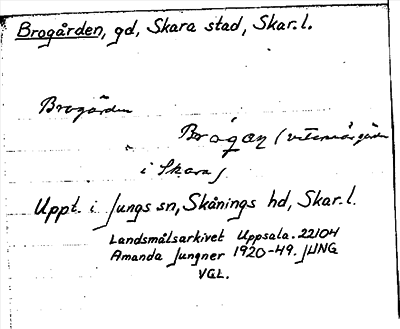 Brogården, gd, Skara stad, Skar.l.
Brogården
Brógan (veterinärgården
i Skara)
Uppt. i Jungs sn, Skånings hd, Skar.l.
Landsmålsarkivet Uppsala. 22104
Amanda Jungner 1920-49. JUNG
VGL.